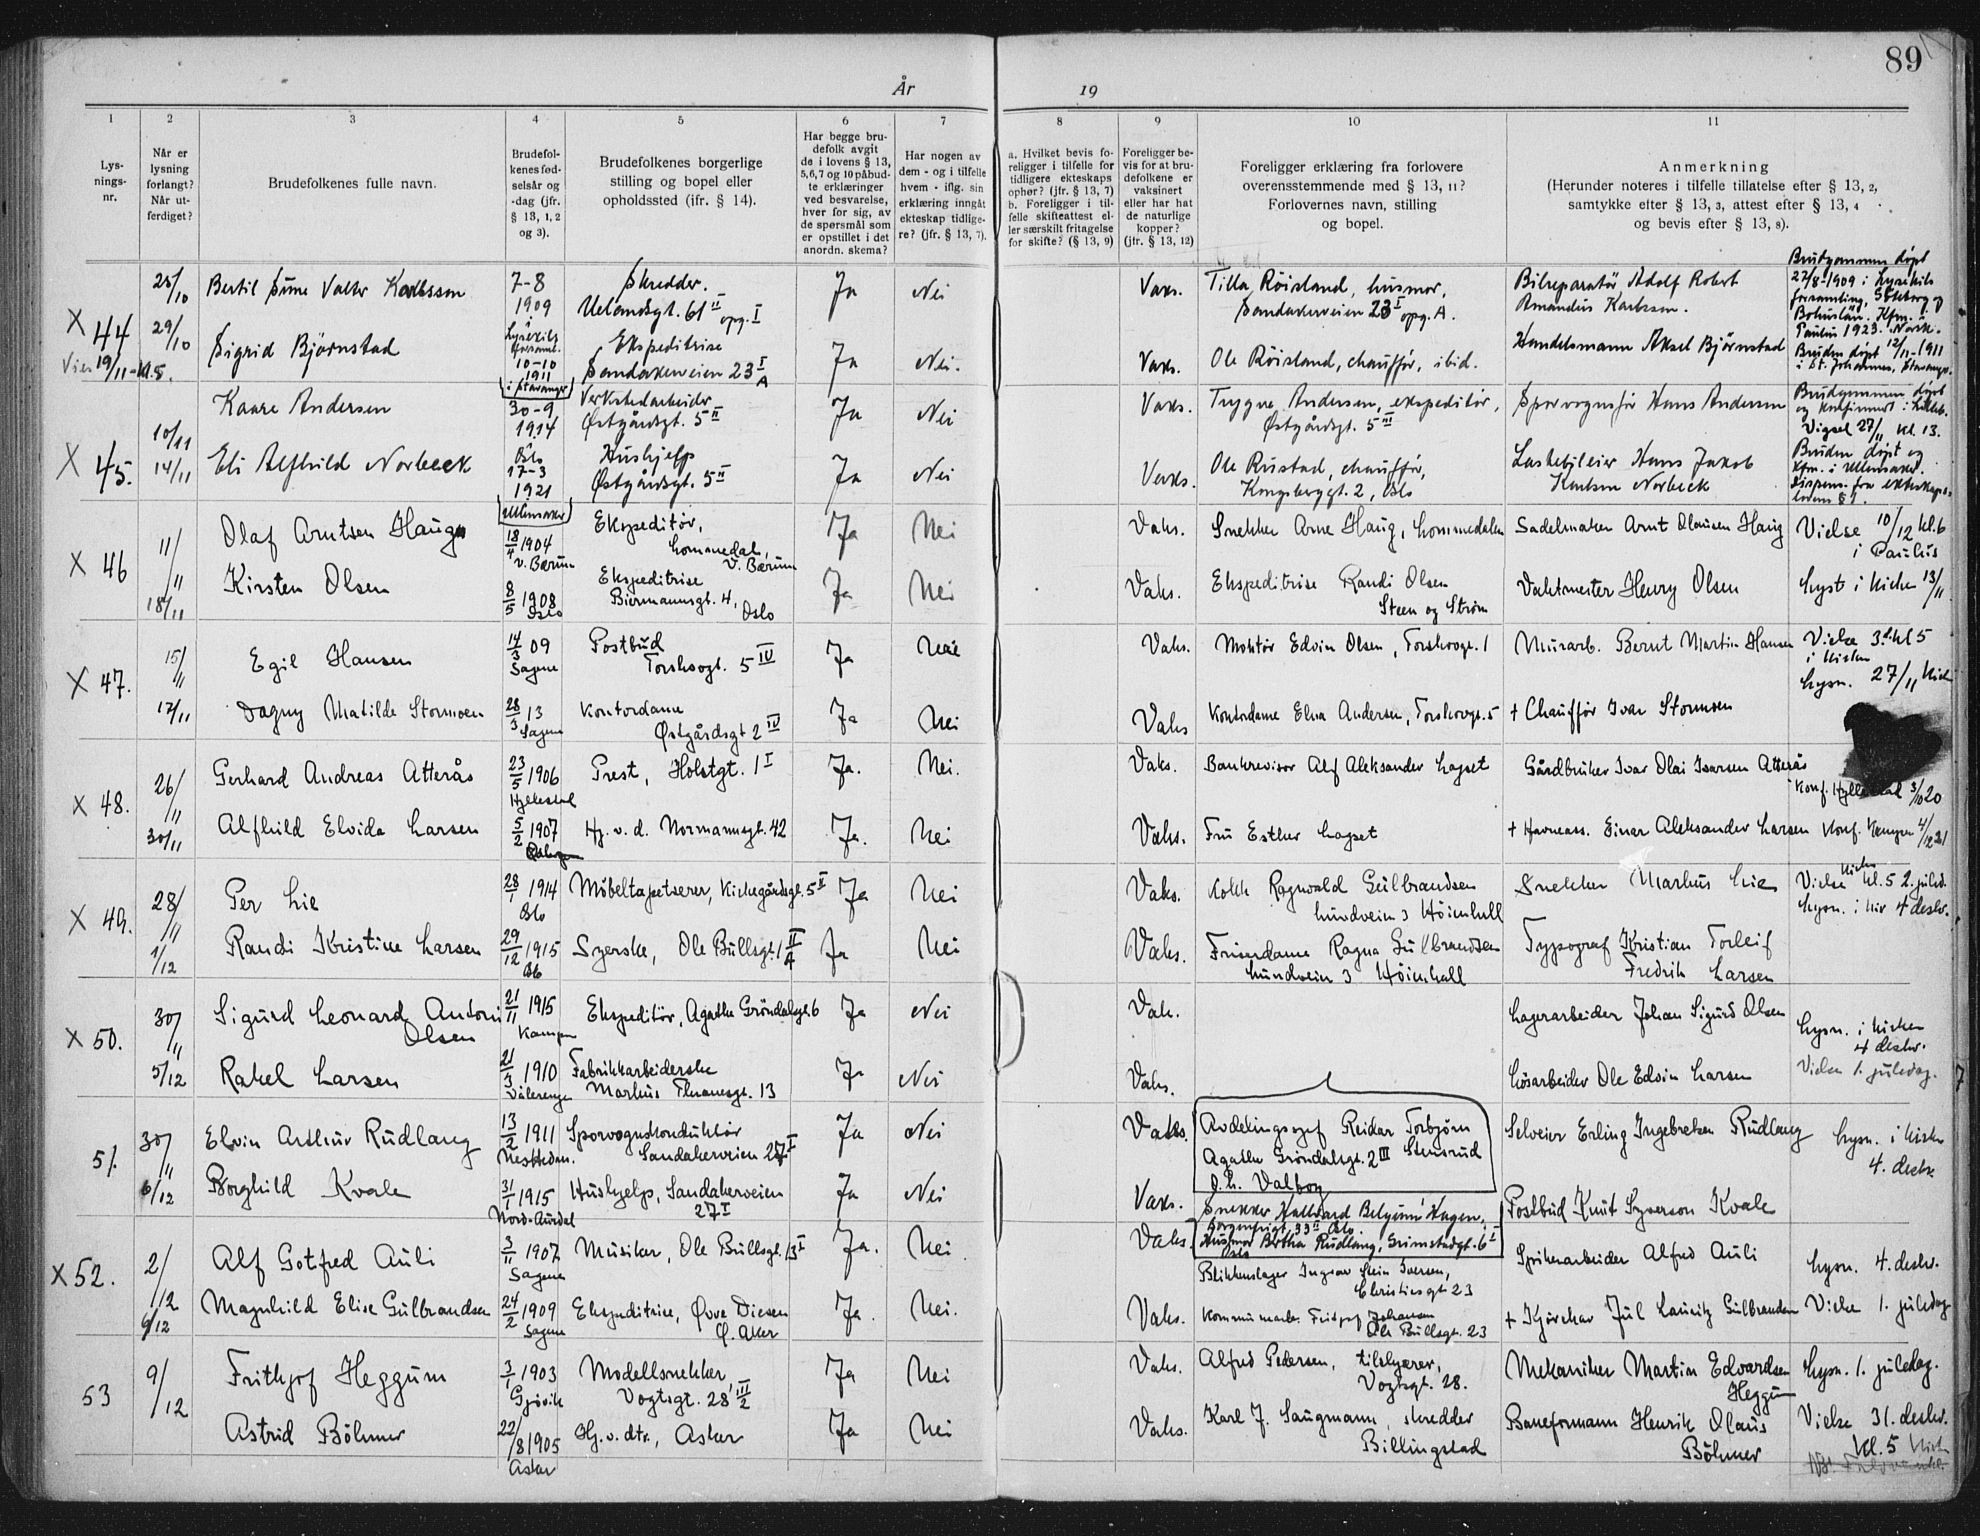 89
År
19
1
2
3
4
5
6
7
8
9
10
11
Lys-
nings-
nr.
Når er
lysning
forlangt?
Når ut-
ferdiget?
Brudefolkenes fulle navn.
Brudefol-
kenes fød-
selsår og
-dag (jfr.
§ 13, 1, 2
og 3).
Brudefolkenes borgerlige
stilling og bopel eller
opholdssted (ifr. § 14).
Har begge bru-
defolk avgit
de i lovens § 13,
5, 6, 7 og 10 påbud-
te erklæringer
ved besvarelse,
hver for sig, av
de spørsmål som
er opstillet i det
anordn. skema?
Har nogen av
dem - og i tilfelle
hvem - iflg. sin
erklæring inngåt
ekteskap tidlige-
re? (jfr. § 13, 7).
a. Hvilket bevis fo-
religger i tilfelle for
tidligere ekteskaps
ophør? (jfr. § 13, 7)
b. Foreligger i til-
felle skifteattest el-
ler særskilt fritagelse
for skifte? (§ 13, 9)
Foreligger be-
vis for at bru-
defolkene er
vaksinert
eller har hat
de naturlige
kopper?
(jfr. § 13, 12)
Foreligger erklæring fra forlovere
overensstemmende med § 13, 11?
Forlovernes navn, stilling
og bopel.
Anmerkning
(Herunder noteres i tilfelle tillatelse efter § 13, 2,
samtykke efter § 13, 3, attest efter § 13, 4
og bevis efter § 13, 8).
X 44
25/10
29/10
Vies 19/11 - kl. 5.
Bertil Sune Valter Karlsson
7-8
1909
Skredder.
Uelandsgt. 61 II opg. I
Ja
Nei
Vaks.
Tilla Röisland, husmor,
Sandakerveien 23 I opg. A.
Bilreparatör Adolf Robert
Amandus Karlsson.
Brudgommen döpt
27/8-1909 i Lysekils
forsamling, Göteborg og
Bohuslän. Kfm. i
Paulus 1923. Norsk.
Sigrid Björnstad
10-10
1911
i Stavanger
Ekspeditrise
Sandakerveien 23 I A
Ja
Nei.
Vaks.
Ole Röisland, chaufför, ibid.
Handelsmann Aksel Björnstad
Bruden döpt 12/11-1911
i St. Johannes, Stavanger.
X 45.
10/11
14/11
Kaare Andersen
30-9
1914
Oslo
Verkstedarbeider
Østgårdsgt. 5 II
Ja
Nei
Vaks.
Trygve Andersen, ekspeditör,
Østgårdsgt. 5 III
Sporvognsför Hans Andersen
Brudgommen döpt
og konfirmert i Lilleb.
Vigsel 27/11 kl. 13.
Eli Alfhild Norbeck
17-3
1921
Ullensaker
Hushjelp
Østgårdsgt. 5 II
Ja
Nei
Vaks.
Ole Rustad, chaufför,
Kongsberggt. 2, Oslo
Lastebileier Hans Jakob
Karlson Norbeck
Bruden döpt og
kfm. i Ullensaker.
Dispens. fra ekteskaps-
lovens § 1.
X 46
11/11
18/11
Olaf Arntsen Haug
18/4 1904
V. Bærum
Ekspeditör,
Lommedal,
V. Bærum
Ja
Nei
Vaks.
Snekker Arne Haug, Lommedalen
Sadelmaker Arnt Olausen Haug
Vielse 10/12 kl. 6
i Paulus
Kirsten Olsen
8/5 1908
Oslo
Ekspeditrise
Biermannsgt. 4,
Oslo
Ja
Nei
Vaks.
Ekspeditrise Randi Olsen
Steen og Ström
Vaktmester Henry Olsen
Lyst i Kirken 13/11
X 47.
15/11
17/11
Egil Hansen
14/3 09
Sagene
Postbud
Torshovgt. 5 IV
Ja
Nei
Vaks.
Montör Edvin Olsen, Torshovgt. 1
Murarb. Bernt Martin Hansen
Vielse 3. kl 5
i Kirken
Lysn. 27/11 Kirk
Dagny Matilde Stormoen
28/3 13
Sagene
Kontordame
Østgårdsgt 2 IV
Ja
Nei
Vaks
Kontordame Elna Andersen, Torshovgt. 5
+ Chaufför Ivar Stormoen
X 48.
26/11
30/11
Gerhard Andreas Atterås
23/5 1906
Hyllestad
Prest, Holstgt. 1 I
Ja.
Nei.
Vaks.
Bankrevisor Alf Aleksander Lagset
Gårdbruker Ivar Olai Ivarsen Atterås
Konf. Hyllestad 3/10 20
Alfhild Elvida Larsen
5/2 1907
Hj. v. d. Normannsgt. 42
Ja.
Nei
Vaks.
Fru Esther Lagset
+ Havneass. Einar Aleksander Larsen
Konf. Kampen 4/12 21
X 49.
28/11
1/12
Per Lie
28/1 1914
Oslo
Möbeltapetserer, Kirkegårdsgt. 5 II
Ja
Nei
Vaks.
Kokk Ragnvald Gulbrandsen
Lundveien 3 Höienhall
Snekker Markus Lie
Vielse Kirken kl. 5 2. juled.
Lysn. i Kir 4 desbr.
Randi Kristine Larsen
29/12 1915
Oslo
Syerske, Ole Bullsgt. 1 II A
Ja
Nei
Vaks.
Friserdame Ragna Gulbrandsen
Lundveien 3 Höienhall
Typograf Kristian Torleif
Fredrik Larsen
X 50.
30/11
5/12
Sigurd Leonard Antoni
Olsen
21/11 1915
Kampen
Ekspeditör, Agathe Gröndalsgt. 6
Ja
Nei
Vak.
Lagerarbeider Johan Sigurd Olsen
Lysn. i Kirken
4 desbr.
Rakel Larsen
21/3 1910
Vålerengen
Fabrikkarbeiderske
Markus Thranesgt. 13
Ja
Nei
Vaks.
Løsarbeider Ole Edvin Larsen
Vielse 1. juledag.
51.
30/11
6/12
Elvin Arthur Rudlang
13/2 1911
Nes Hedm.
Sporvognskonduktör
Sandakerveien 27 I
Ja
Nei
Vaks.
Avdelingssjef Reidar Torbjörn
Stensrud
Agathe Gröndalsgt. 2 III
g.h. Valborg
Selveier Erling Ingebretsen Rudlang
Lysn. i Kirken
4. desbr
Borghild Kvale
31/1 1915
Nord-Aurdal
Hushjelp, Sandakerveien
27 I
Ja
Nei
Vaks.
Snekker Hallvard Belgum Hagen,
Sorgenfrigt. 33 II Oslo.
Husmor Bertha Rudlang, Grimstadgt. 6 I
Oslo
Postbud Knut Syverson Kvale
X 52.
2/12
6/12
Alf Gotfred Auli
3/11 1907
Sagene
Musiker, Ole Bullsgt. 13 I
Ja.
Nei
Vaks.
Blikkenslager Ingvar Stein Iversen,
Christiesgt 23
Spikerarbeider Alfred Auli
Lysn. 4. desbr.
Magnhild Elise Gulbrandsen
24/2 1909
Sagene
Ekspeditrise, Øvre Diesen
Ø. Aker
Ja.
Nei.
Vaks.
Kommunearb. Fridtjof Johansen
Ole Bullsgt. 23
+ Kjörekar Jul Lauritz Gulbrandsen
Vielse 1. juledag
53
9/12
Frithjof Heggum
3/1 1903
Gjövik
Modellsnekker,
Vogtsgt. 28 III/2
Ja
Nei
Vaks.
Alfred Pedersen, tilskjærer,
Vogtsgt. 28.
Mekaniker Martin Edvardsen
Heggum
Lysn. 1. juledag.
Astrid Böhmer
22/8 1905
Asker
Hj. v. dtr., Asker
Ja
Nei
Vaks.
Karl J. Saugmann, skredder
Billingstad
Baneformann Henrik Olaus
Böhmer
Vielse 31. desbr.
kl. 5 Kirk